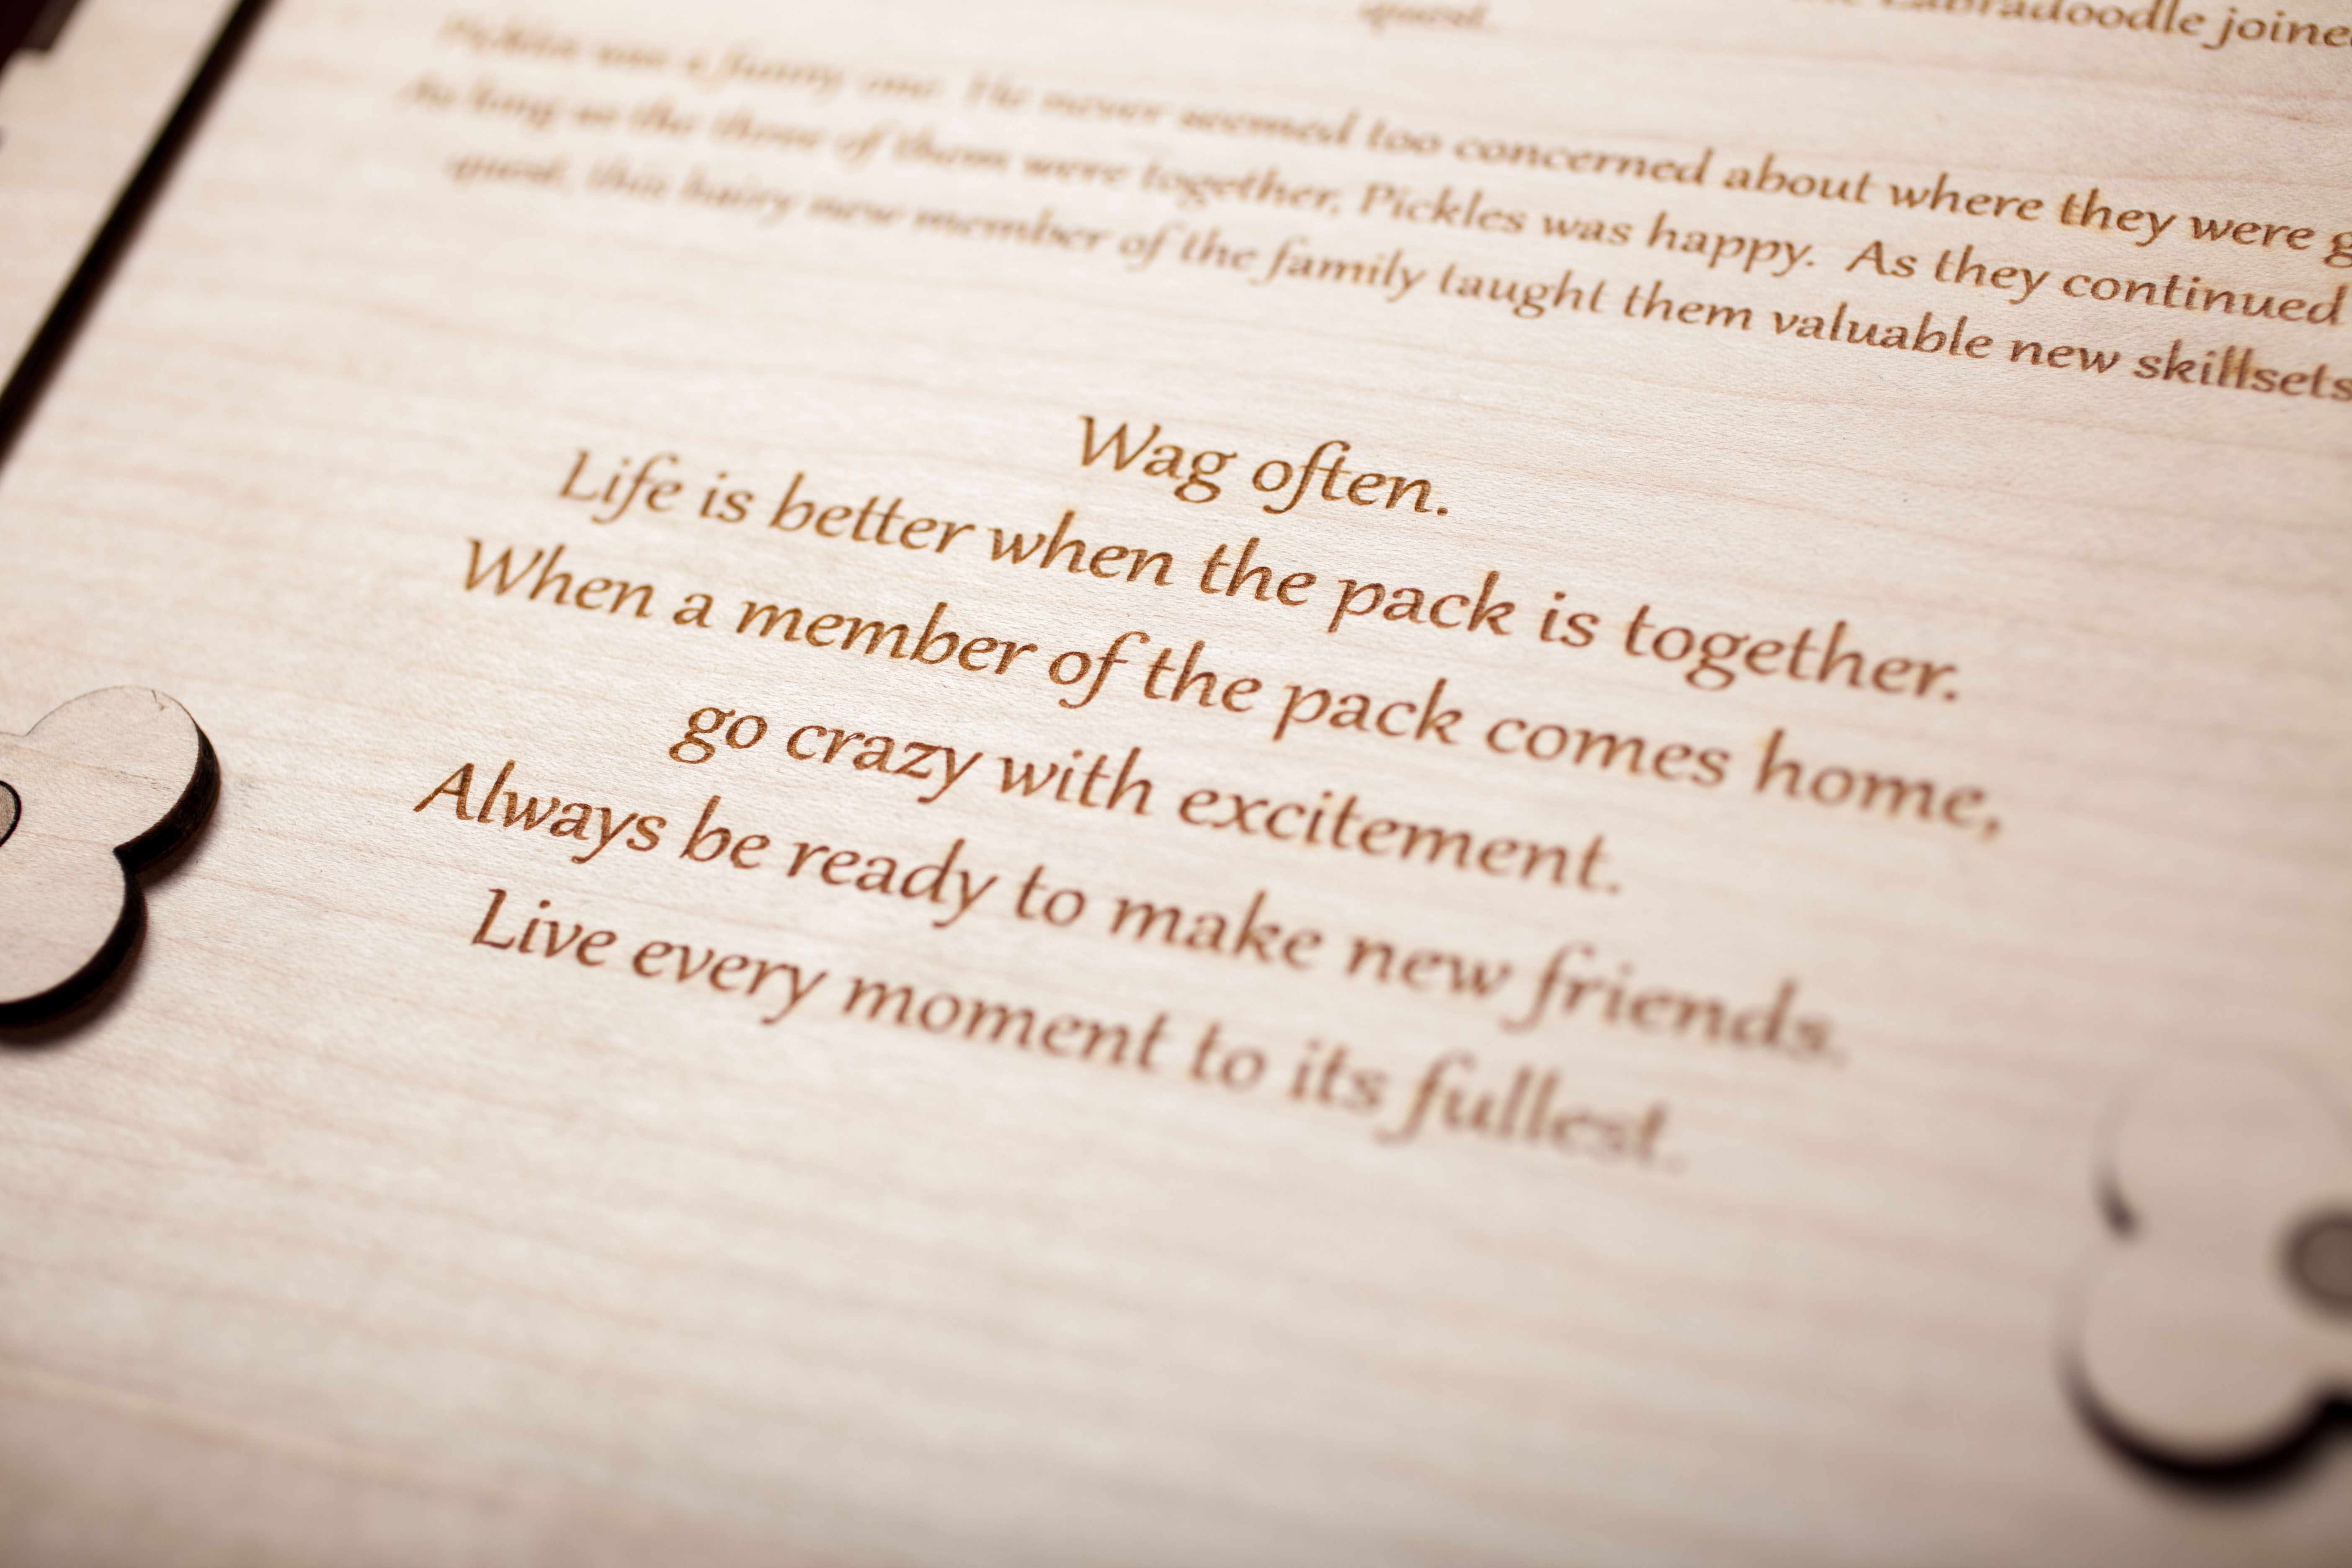 Labradoodle joined
quest.
Pickles was a funny one. He never seemed too concerned about where they were g
As long as the three of them were together, Pickles was happy. As they continued
quest, this hairy new member of the family taught them valuable new skillsets
Wag often.
Life is better when the pack is together.
When a member of the pack comes home,
go crazy with excitement.
Always be ready to make new friends.
Live every moment to its fullest.